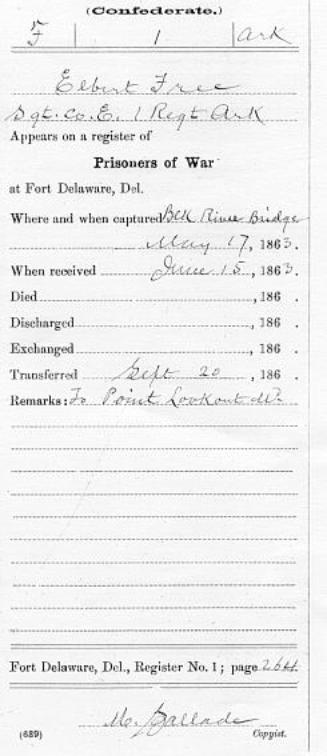 (Confederate.)
F | 1 | Ark
Elbert Free
Sgt. Co. E. 1 Regt Ark
Appears on a register of
Prisoners of War
at Fort Delaware, Del.
Where and when captured Blk River Bridge
May 17, 1863.
When received June 15, 1863.
Died , 186 .
Discharged , 186 .
Exchanged , 186 .
Transferred Sept 20 , 186 .
Remarks: To Point Lookout Md
Fort Delaware, Del., Register No. 1; page 264
M. Ballade
(639) Copyist.